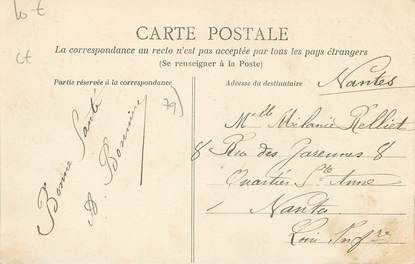 10 €
ct
CARTE POSTALE
La correspondance au recto n'est pas acceptée par tous les pays étrangers
(Se renseigner à la Poste)
Partie réservée à la correspondance
Adresse du destinataire
79)
Bonne Santé
A. Bonnin
Nantes
Melle Mélanie Relliet
8 Rue des Garennes 8
Quartier Ste Anne
Nantes
Loire Infre